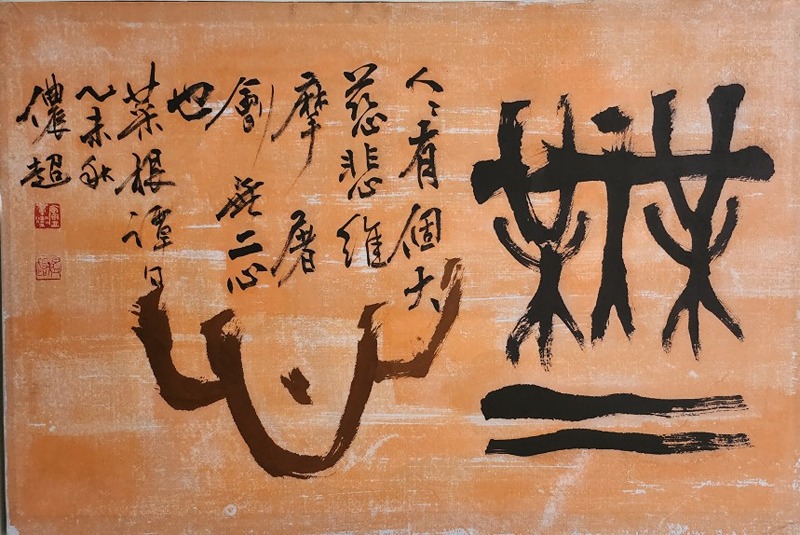 無二
心
人々有個大
慈悲維
摩屠
劊無二心
也
菜根譚曰
乙未秋
儂超